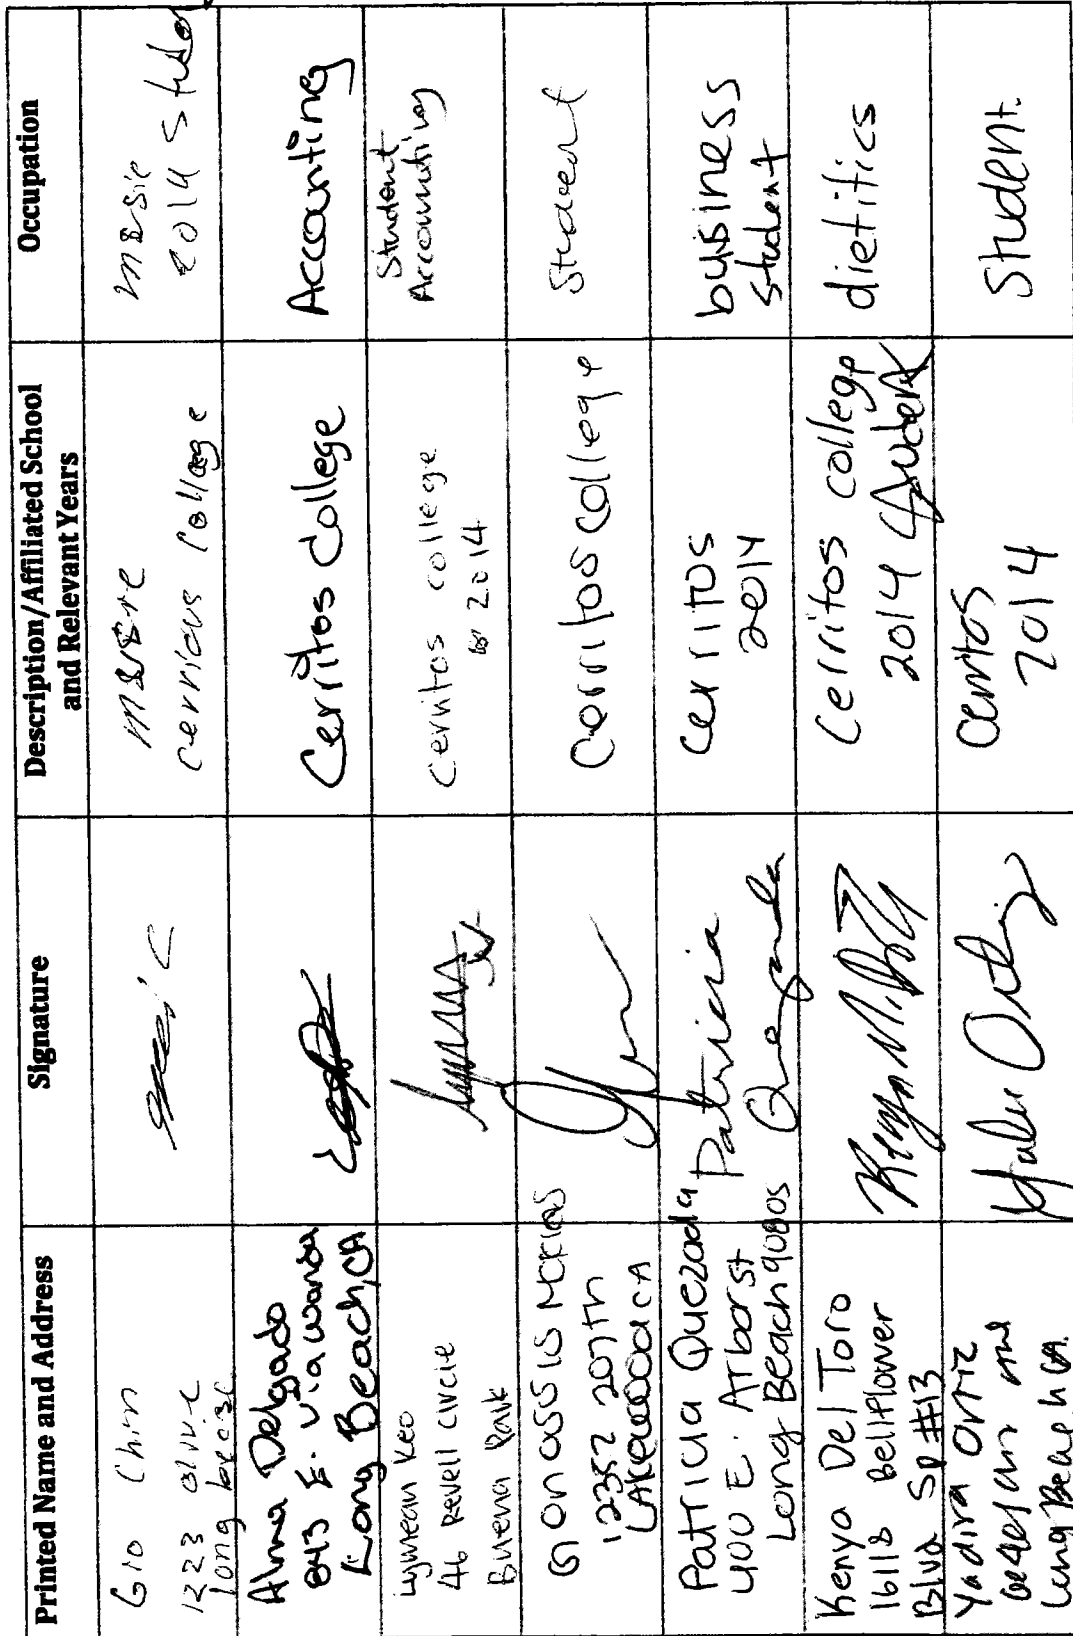 Printed Name and Address
Signature
Description/Affiliated School
and Relevant Years
Occupation
Gio Chim
1223 olive
long
cerritus College
2014
Alma Delgado
843 E. via wanda
Long Beach, CA
Cerritos College
Accounting
Lymean Keo
46 Revell circle
Buena Park
Cerritos college
2014
Student
Accounting
12352 207th
LAKewood CA
Cerritos College
Student
Patricia Quezada
400 E. Arbor st
Long Beach 90805
Patricia
Quezada
Cerritos
2014
business
student
Kenya Del Toro
16118 Bellflower
Blvd Sp #13
Cerritos college
2014 Student
dietitics
Yadira Ortiz
Long Beach CA.
Ortiz
Cerritos
2014
Student.